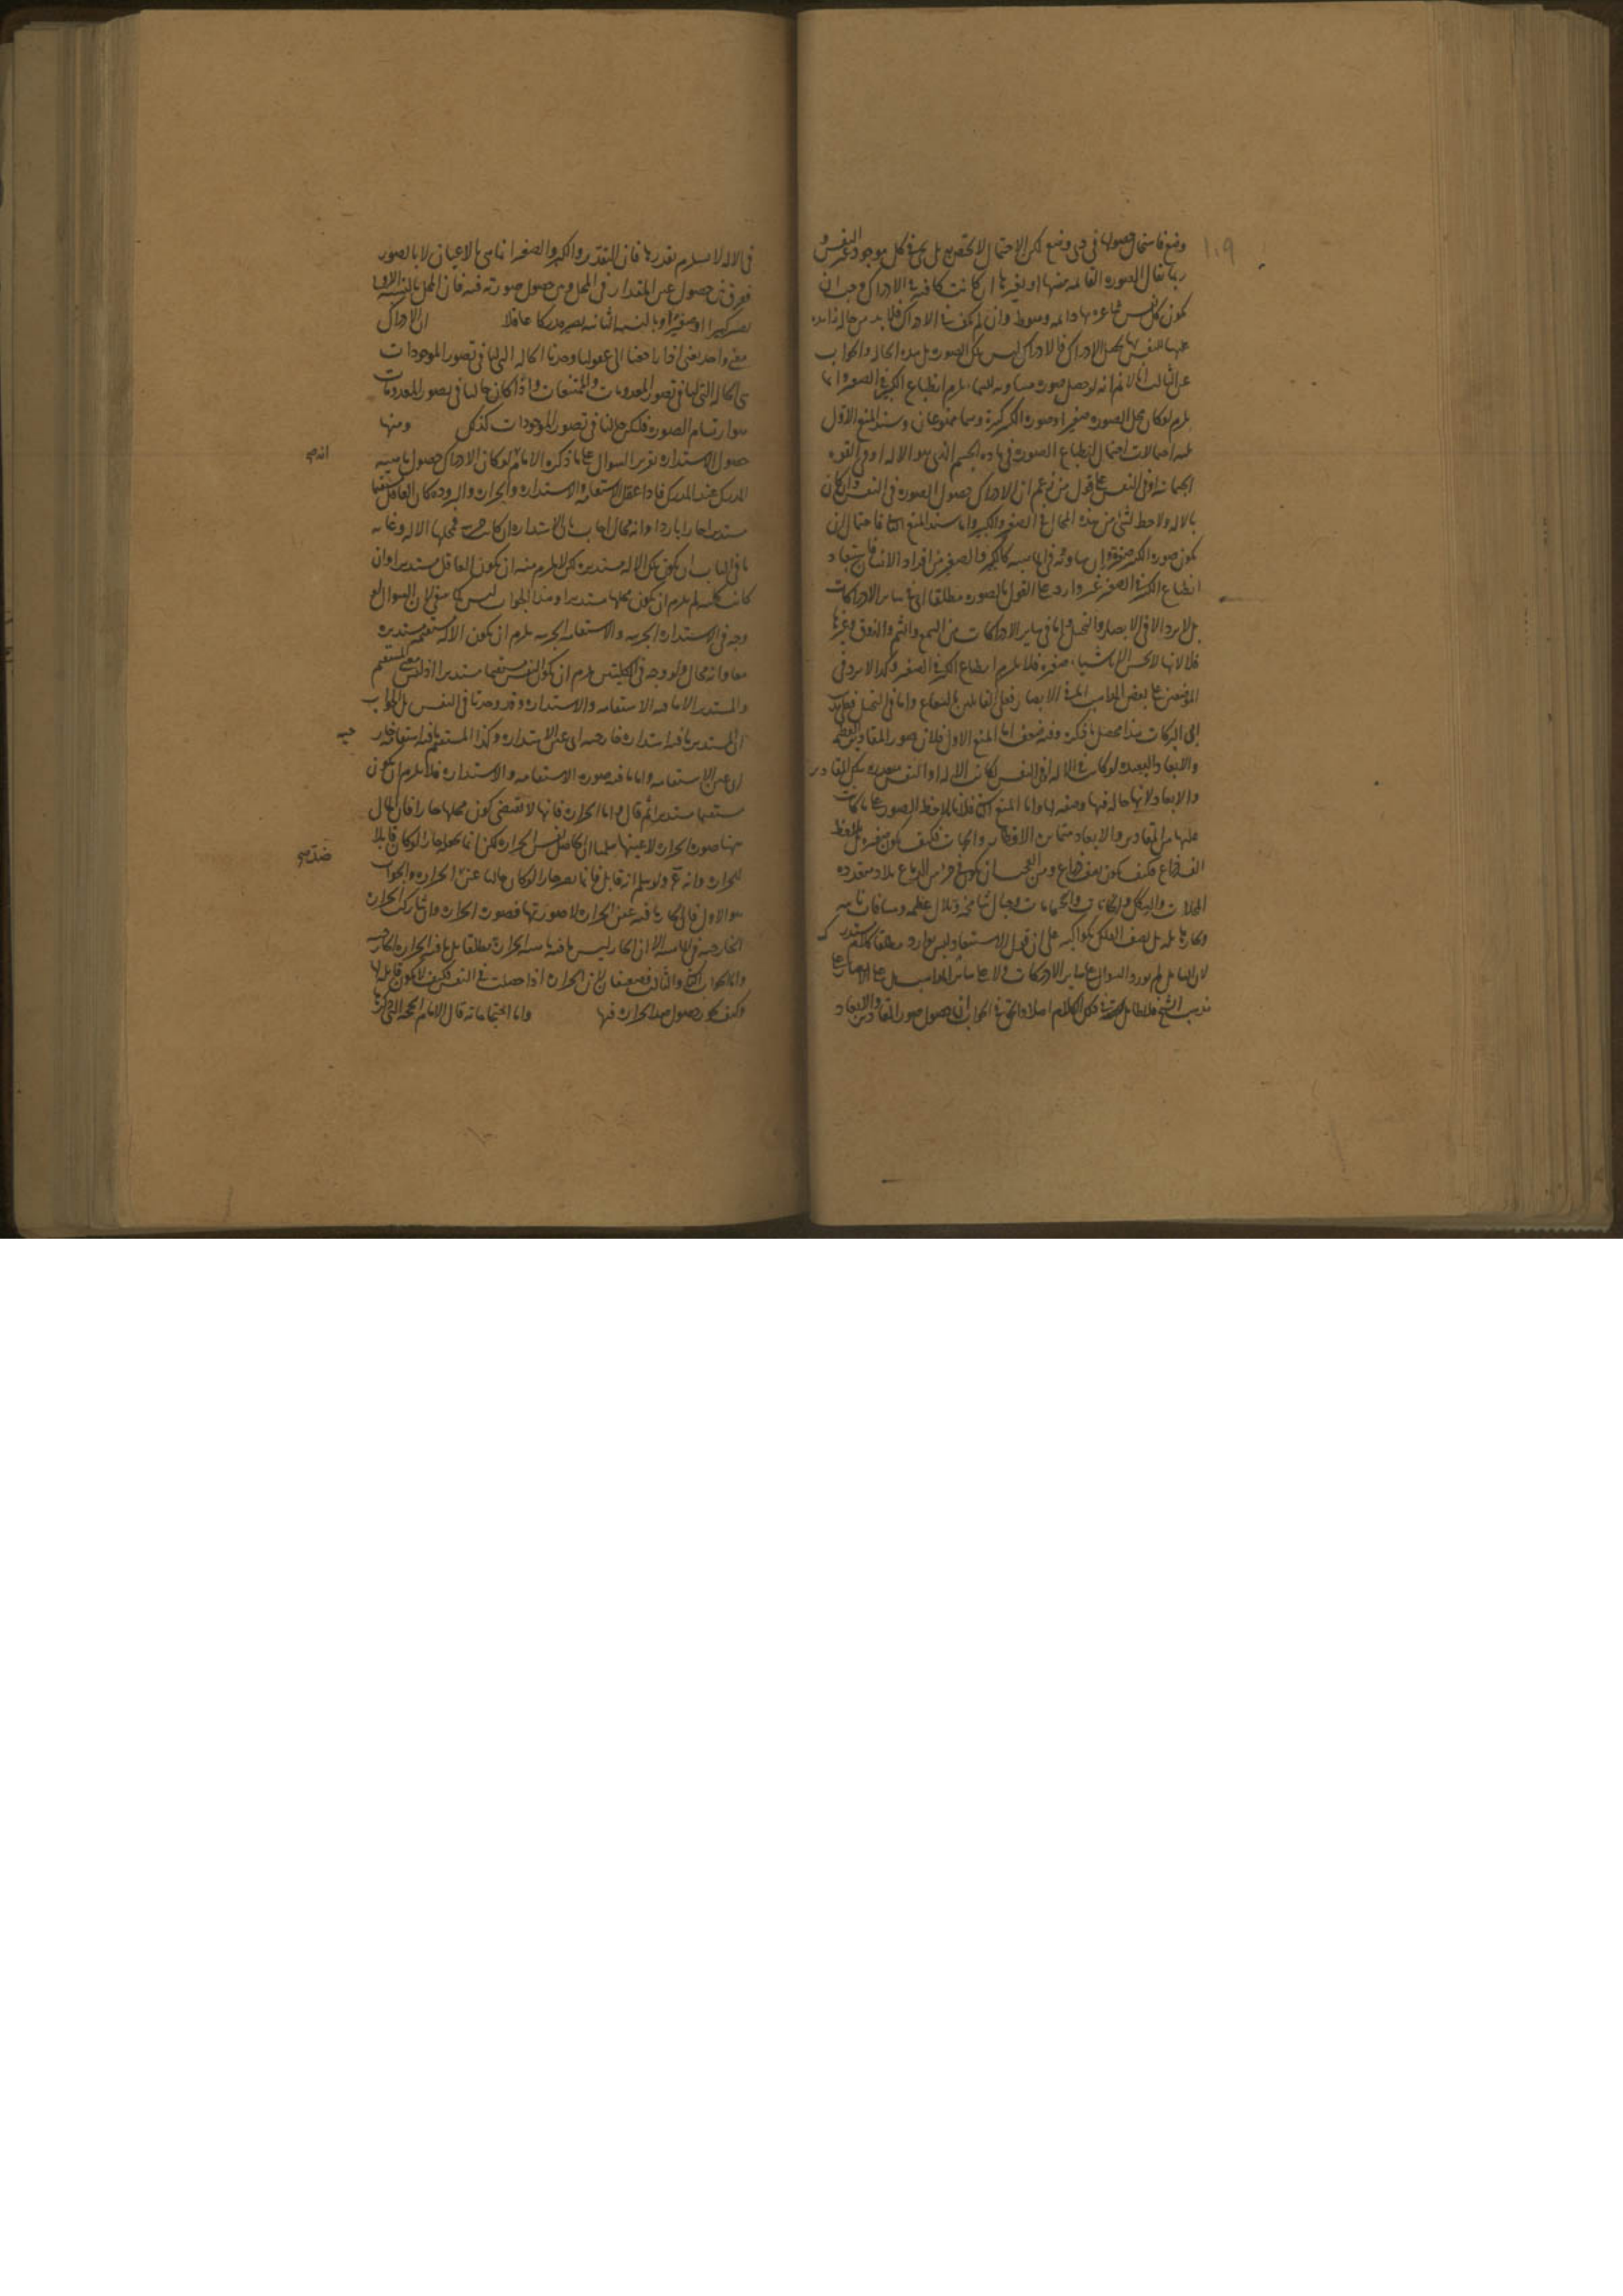 ١٠٩
وضع فاستحال حصولها في ذي وضع لكن الاحتمال لا يختص به بل يجري في كل موجود غير النفس و
ربما يقال الصورة القائمة بنفسها او بغيرها ان كانت كافية في الادراك وجب ان
يكون كل نفس شاعرة بها دائمة وسوط وان لم يكف في الادراك فلا بد من حالة زائدة
عنها للنفس بها يحصل الادراك فالادراك ليس تلك الصورة بل هذه الحالة والجواب
عن الثالث انا لا نم انه لو حصل صورة مساوية للسماء يلزم انطباع الكبير في الصغير وانما
يلزم لو كان محل الصورة صغيرا وصورة الكبير كبيرة وهما ممنوعان وسند المنع الاول
احتمالات احتمال انطباع الصورة في مادة الجسم الذي هو الالة او في القوة
الجسمانية او في النفس على قول من زعم ان الادراك حصول الصورة في النفس وان كان
بالالة ولا حظ لشئ من هذه المحال في الصغر والكبر واما سند المنع فاحتمال ان
يكون صورة الكبير صغيرة وان ساوته في الماهية كالكبير والصغير من افراد الانسان فاستبعاد
انطباع الكبير في الصغير غير وارد على القول بالصورة مطلقا اي في سائر الادراكات
بل لا يرد الا في الابصار والتخيل واما في سائر الادراكات من السمع والشم والذوق وغيرها
فلانها لا تحس الا باشياء صغيرة فلا يلزم انطباع الكبير في الصغير وكذا لا يرد في
الموضعين على بعض المذاهب اما في الابصار فعلى القائلين بالشعاع واما في التخيل فعلى راي
ابي البركات هذا محصل ما ذكره وفيه ضعف اما المنع الاول فلان صور المقادير العظيمة
والابعاد البعيدة لو كانت في الالة او في النفس لكانت الالة او النفس متقدرة بتلك المقادير
والابعاد لانها حالة فيها وصفة لها واما المنع فلانا نلاحظ الصور على ما كانت
عليها من المقادير والابعاد متمايزة الاقطار والجهات فكيف يكون صغيرة بل نلاحظ
الف ذراع فكيف يكون نصف ذراع ومن العجب ان يكون في جزء من الدماغ بلاد متعددة
المحلات والسكك والخانات والحمامات وجبال شامخة وتلال عظيمة ومسافات نائية
وبحار هائلة بل نصف الفلك بكواكبه على ان قوله الاستبعاد ليس بوارد مطلقا كلام مستدرك
لان السائل لم يورد السؤال على سائر الادراكات ولا على سائر المذاهب بل على الابصار على
مذهب الشيخ فلا طائل تحته في ذلك الكلام اصلا والحق في الجواب ان حصول صور المقادير والابعاد
في الالة لا يستلزم تقدرها فان التقدر والكبر والصغر انما هي بالاعيان لا بالصور
ففرق بين حصول عين المقدار في المحل وبين حصول صورته فيه فان المحل بالنسبة الاولى
يصير كبيرا او صغيرا وبالنسبة الثانية يصير مدركا عاقلا ان الادراك
معنى واحد يعني اذا راجعنا الى عقولنا وجدنا الحالة التي لنا في تصور الموجودات
هي الحالة التي لنا في تصور المعدومات والممتنعات واذا كان حالنا في تصور المعدومات
هو ارتسام الصورة فلتكن حالنا في تصور الموجودات كذلك ومنها
حصول الاستدارة تقرير السؤال على ما ذكره الامام انه لو كان الادراك حصول ماهية
المدرك عند المدرك فاذا عقل الاستقامة والاستدارة والحرارة والبرودة كان العاقل مستقيما
مستديرا حارا باردا وانه محال اجاب بان الاستدارة ان كانت جزئية فمحلها الالة وغاية
ما في الباب ان يكون تلك الالة مستديرة لكن لا يلزم منه ان يكون العاقل مستديرا وان
كانت كلية لم يلزم ان يكون محلها مستديرا وهذا الجواب ليس بمستقيم لان السؤال لو
وجه في الاستدارة الجزئية والاستقامة الجزئية يلزم ان يكون الالة مستقيمة مستديرة
معا وانه محال ولو وجه في الكليتين يلزم ان يكون النفس مستقيما مستديرا اذ ليس معنى المستقيم
والمستدير الا ما فيه الاستقامة والاستدارة وقد وجدتا في النفس بل الجواب
ان المستدير ما فيه استدارة خارجية اي عين الاستدارة وكذا المستقيم ما فيه استقامة خارجية
اي عين الاستقامة واما ما فيه صورة الاستقامة والاستدارة فلا يلزم ان يكون
مستقيما مستديرا ثم قال واما الحرارة فانها لا تقتضي كون محلها حارا فان الحال
فيها صورة الحرارة لا عينها سلمنا ان الحاصل نفس الحرارة لكن انما يجعله حارا لو كان قابلا
للحرارة وانه مم ولو سلم انه قابل فانما يصير حارا لو كان خاليا عن ضد الحرارة والجواب
هو الاول فان الحار ما فيه عين الحرارة لا صورتها فصورة الحرارة وان شاركت الحرارة
الخارجية في الماهية الا ان الحار ليس ما فيه ماهية الحرارة مطلقا بل ما فيه الحرارة الخارجية
واما الجواب الثاني والثالث فضعيفان لان الحرارة اذا حصلت في النفس فكيف لا يكون قابلة لها
وكيف يجوز حصول ضد الحرارة فيها واما احتجاجاته قال الامام الحجة التي ذكرها
انه صح
جية
ضد صح